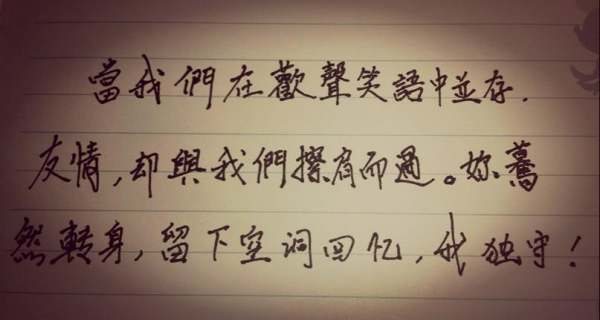 當我們在歡聲笑語中並存.
友情,却與我們擦肩而過。妳驀
然轉身,留下空洞回忆,我独守!